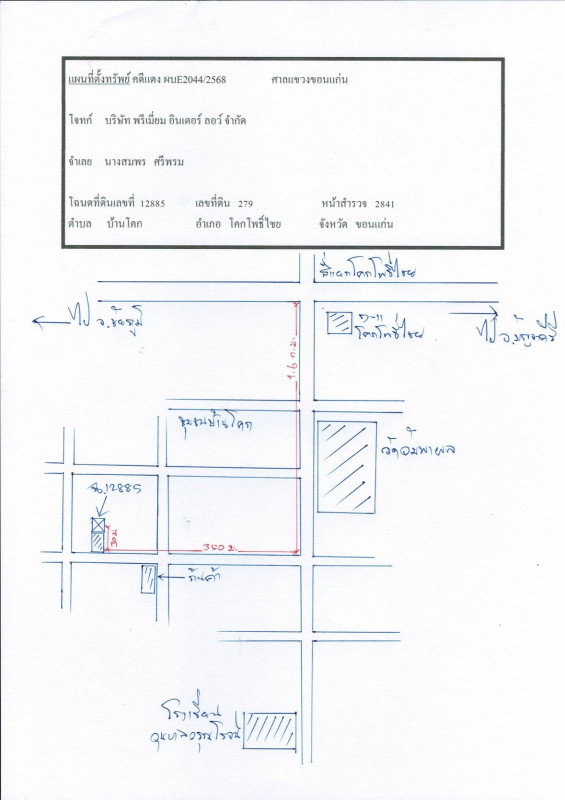 แผนที่ตั้งทรัพย์ คดีแดง ผบE2044/2568 ศาลแขวงขอนแก่น
โจทก์ บริษัท พรีเมี่ยม อินเตอร์ ลอว์ จำกัด
จำเลย นางสมพร ศรีพรม
โฉนดที่ดินเลขที่ 12885 เลขที่ดิน 279 หน้าสำรวจ 2841
ตำบล บ้านโคก อำเภอ โคกโพธิ์ไชย จังหวัด ขอนแก่น
สี่แยกโคกโพธิ์ไชย
ไป จ.ชัยภูมิ
โคกโพธิ์ไชย
ไป
1.6 ก.ม.
ชุมชนบ้านโคก
วัดอัมพาผล
ฉ.12885
350 ม.
ร้านค้า
โรงเรียน